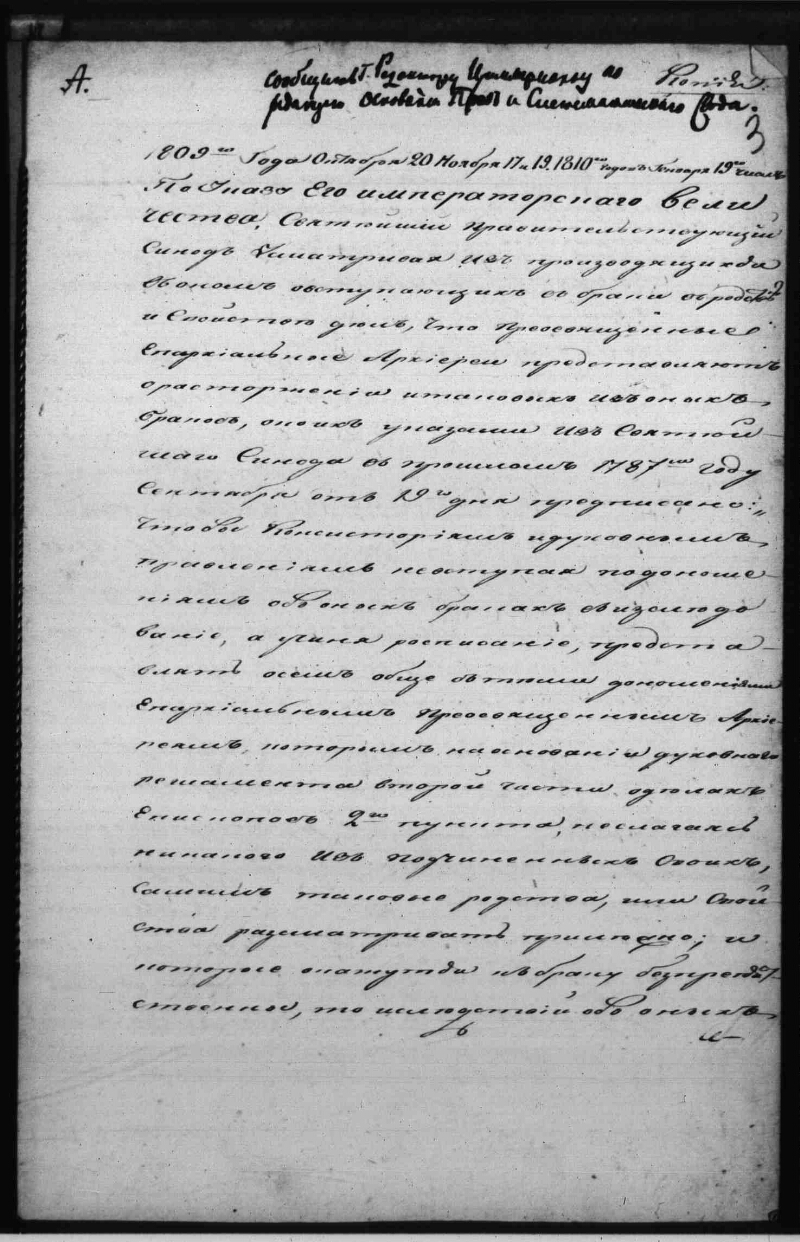 А.
Копія.
сообщить Г. Редактору по
редакціи Основаній Правъ и Систематическаго Свода.
3
1809го Года Октября 20 Ноября 17 и 19. 1810го годовъ Генваря 19го числъ
По Указу Его императорскаго вели
чества, Святѣйшій Правительствующій
Синодъ усматривая изъ производящихся
въ ономъ о вступающихъ въ браки въ родствѣ
и Свойствѣ дѣлъ, что Преосвященные
Епархіальные Архіереи представляютъ
о расторженіи и таковыхъ изъ оныхъ
браковъ, о коихъ указами изъ Святѣй
шаго Синода въ прошломъ 1787мъ году
Сентября отъ 19го дня предписано: „
Чтобы Консисторіямъ и духовнымъ
правленіямъ не вступая по доноше
ніямъ объ оныхъ бракахъ въ изслѣдо
ваніе, а учиня росписаніе, предста
влять о семъ обще съ тѣми доношеніями
Епархіальнымъ Преосвященнымъ Архіе
реямъ, которымъ на основаніи духовнаго
регламента второй части о дѣлахъ
Епископовъ 2го пункта, не слагая съ
никакого изъ подчиненныхъ Своихъ,
Самимъ таковые родства, или Свой
ства разсматривать прилѣжно; и
которые окажутся къ браку безпрепят
ственны, то и слѣдствій объ оныхъ